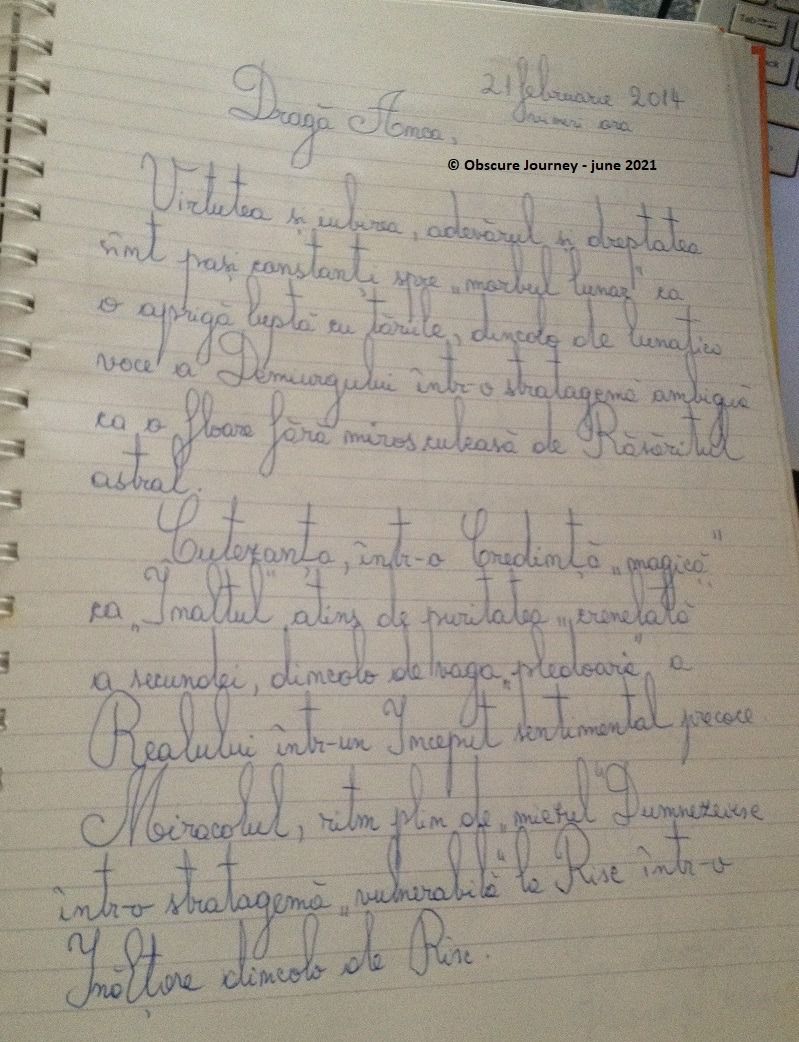 21 februarie 2014
Dragă Anca,
© Obscure Journey - june 2021
Virtutea și iubirea, adevărul și dreptatea
sînt pași constanți spre „morbul lunar" ca
o aprigă luptă cu tăriile, dincolo de lunatica
voce a Demiurgului într-o stratagemă ambiguă
ca o floare fără miros culeasă de Răsăritul
astral.
Cutezanța, într-o Credință „magică"
ca „Înaltul" atins de puritatea „crenelată"
a secundei, dincolo de vaga „pledoarie" a
Realului într-un Început sentimental precoce.
Miracolul, ritm plin de „miezul" Dumnezeiesc
într-o stratagemă „vulnerabilă" la Rise într-o
Înălțare dincolo de Rise.
Tab